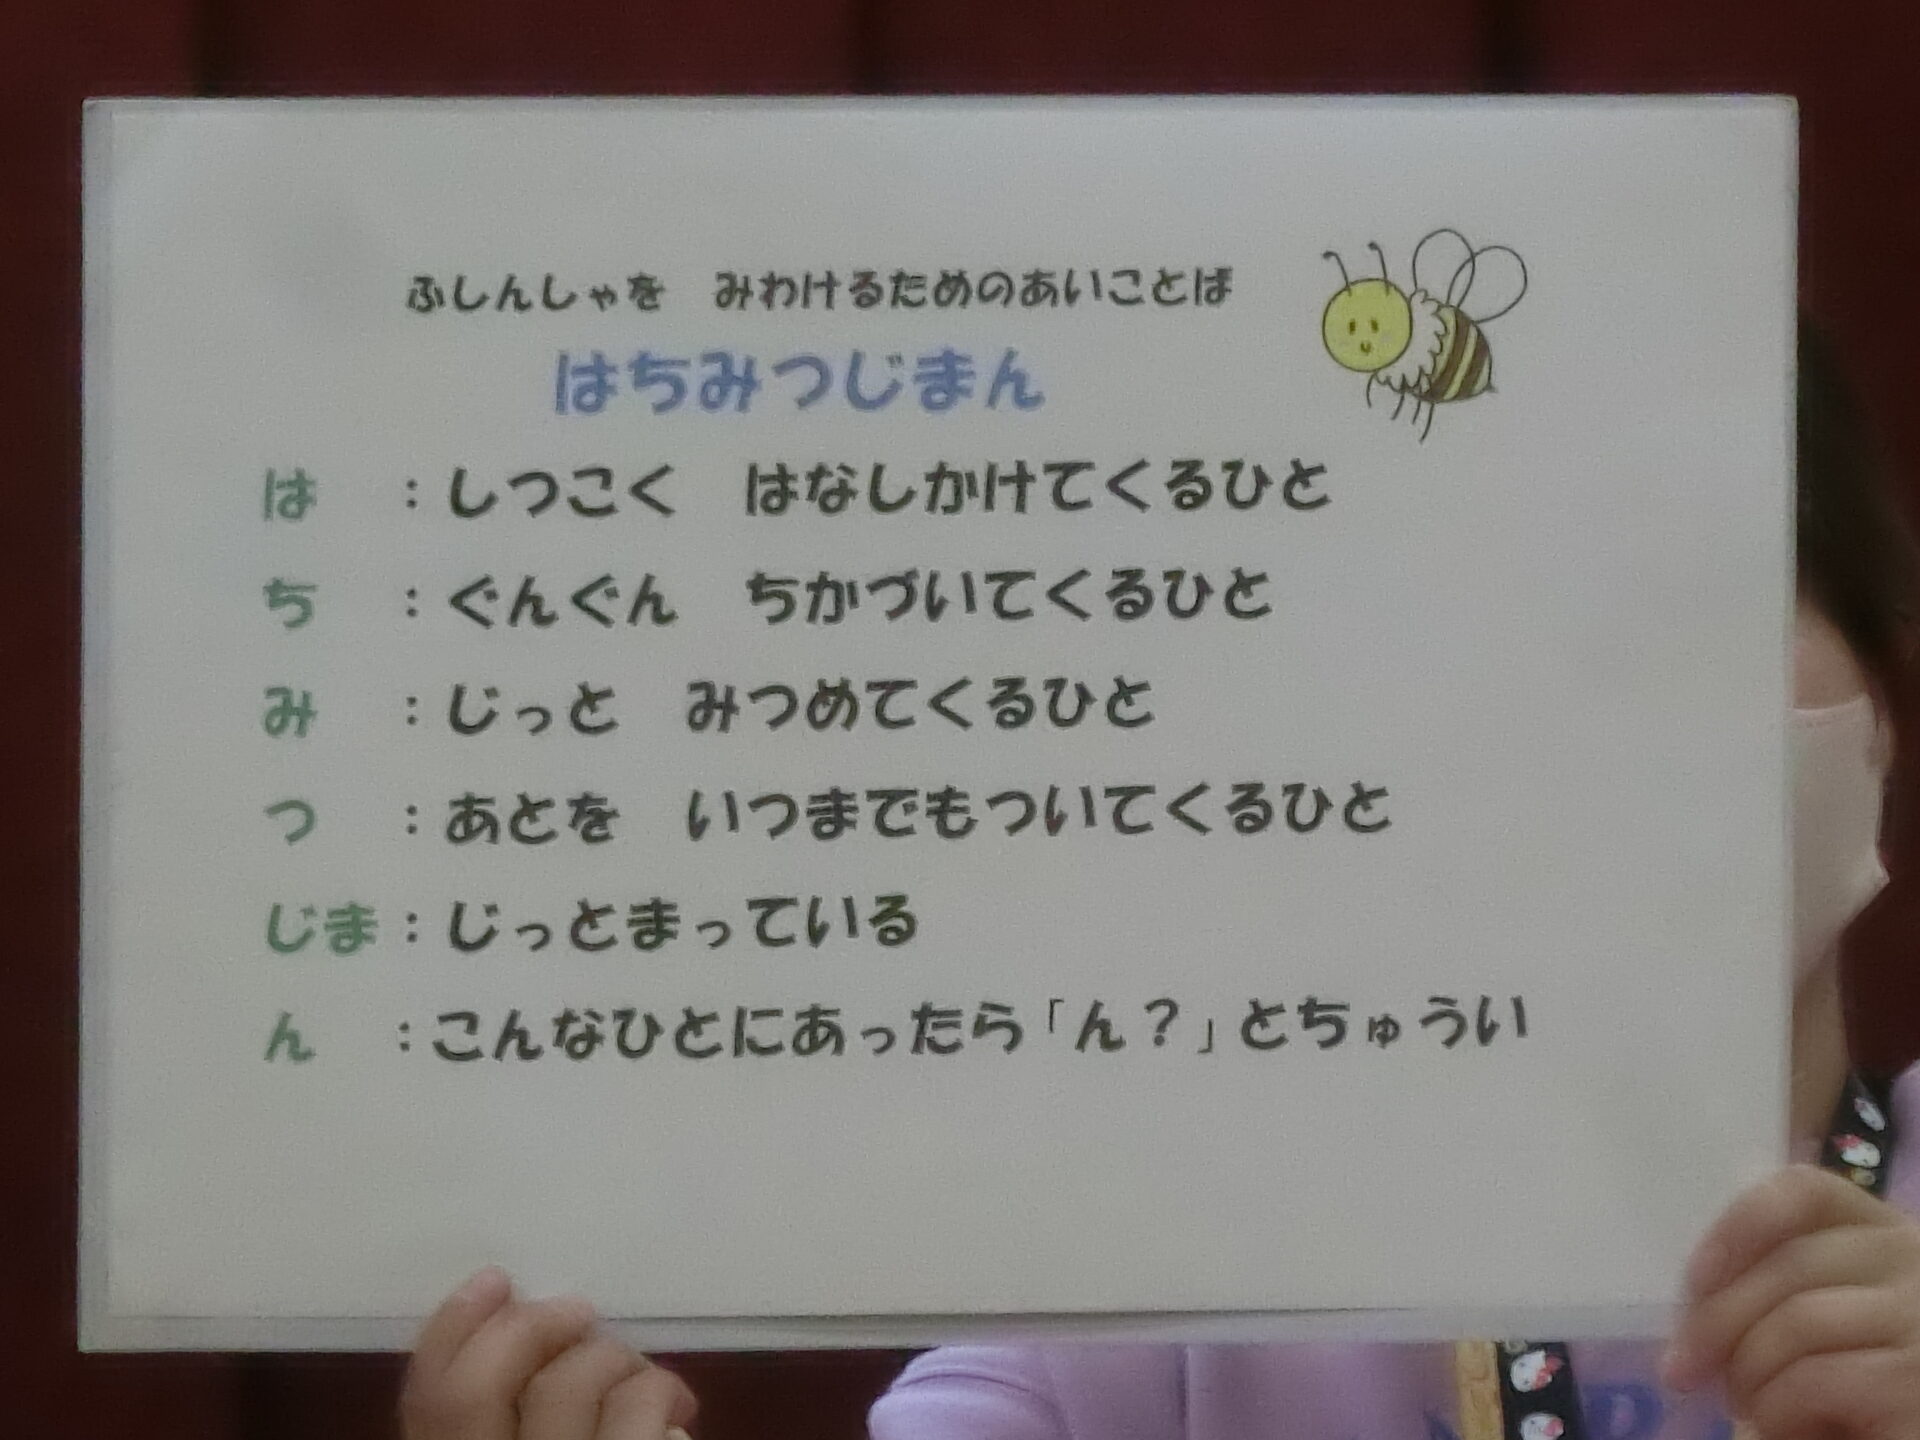 ふしんしゃを　みわけるためのあいことば
はちみつじまん
は　：しつこく　はなしかけてくるひと
ち　：ぐんぐん　ちかづいてくるひと
み　：じっと　みつめてくるひと
つ　：あとを　いつまでもついてくるひと
じま：じっとまっている
ん　：こんなひとにあったら「ん？」とちゅうい